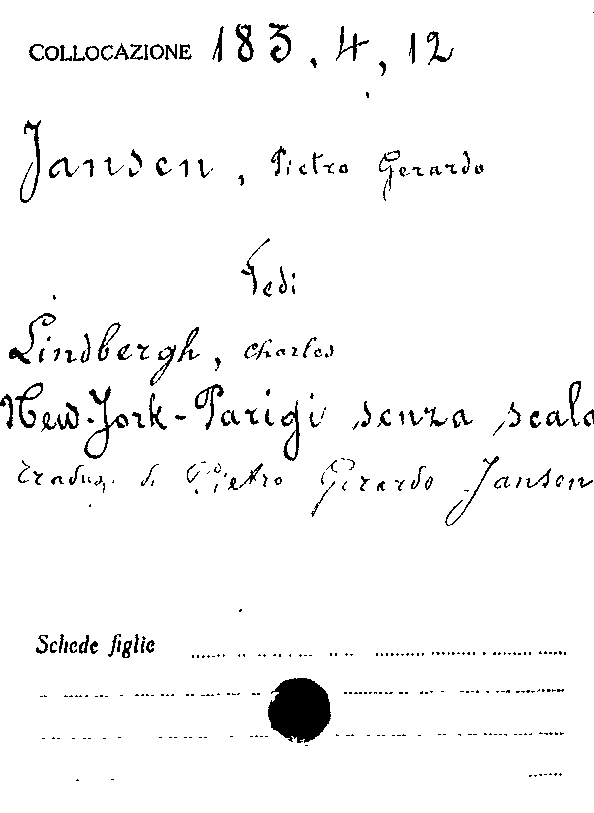 COLLOCAZIONE 183.4,12
Jansen, Pietro Gerardo
Vedi
Lindbergh, Charles
New-York-Parigi senza scalo
Traduz. di Pietro Gerardo Jansen
Schede figlie